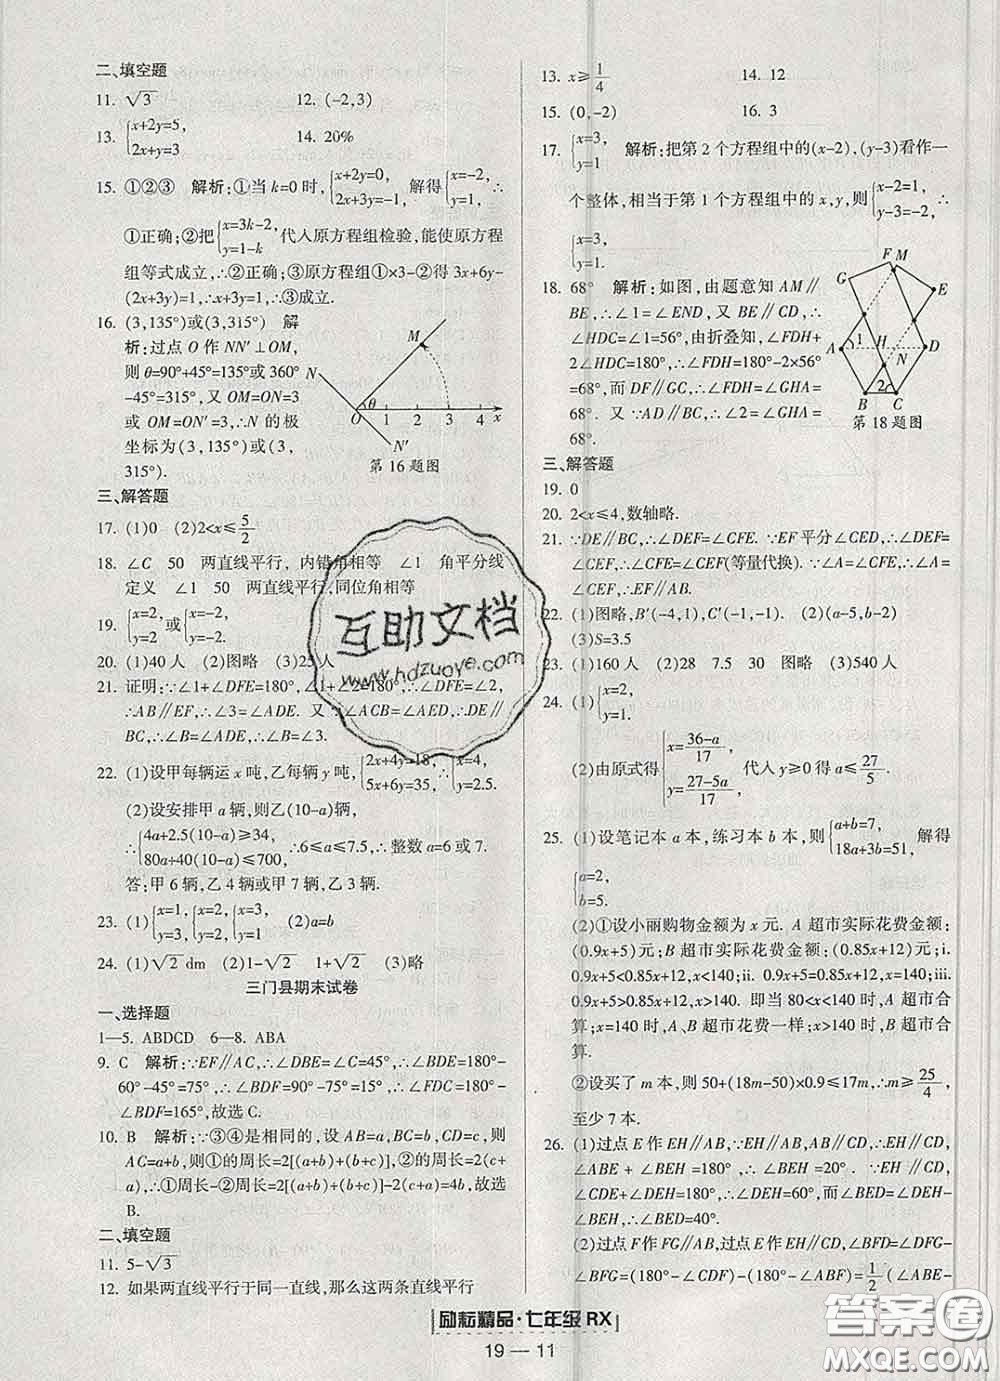 二、填空题
11. √3 12. (-2,3)
13. {x+2y=5, 2x+y=3 14. 20%
15. ①②③ 解析:①当 k=0 时,{x+2y=0, 2x+3y=-1, 解得{x=-2, y=1, ∴
①正确;②把{x=3k-2, y=1-k 代人原方程组检验,能使原方程
组等式成立,∴②正确;③原方程组①×3-②得 3x+6y-
(2x+3y)=1,∴x+3y=1,∴③成立.
16. (3,135°)或(3,315°) 解
析:过点 O 作 NN′⊥OM,
则 θ=90°+45°=135°或 360°
-45°=315°,又 OM=ON=3
或 OM=ON′=3,∴N 的极
坐标为(3,135°)或(3,
315°).
M
N
θ
O 1 2 3 4 x
N′
第 16 题图
三、解答题
17. (1)0 (2)2<x≤5/2
18. ∠C 50 两直线平行,内错角相等 ∠1 角平分线
定义 ∠1 50 两直线平行,同位角相等
19. {x=2, y=2 或{x=-2, y=-2.
20. (1)40 人 (2)图略 (3)25 人
21. 证明:∵∠1+∠DFE=180°,∠1+∠2=180°,∴∠DFE=∠2,
∴AB∥EF,∴∠3=∠ADE. 又∵∠ACB=∠AED,∴DE∥
BC,∴∠B=∠ADE,∴∠B=∠3.
22. (1)设甲每辆运 x 吨,乙每辆运 y 吨,{2x+4y=18, 5x+6y=35, {x=4, y=2.5.
(2)设安排甲 a 辆,则乙(10-a)辆,
∴{4a+2.5(10-a)≥34, 80a+40(10-a)≤700, ∴6≤a≤7.5,∴整数 a=6 或 7.
答:甲 6 辆,乙 4 辆或甲 7 辆,乙 3 辆.
23. (1){x=1, y=3, {x=2, y=2, {x=3, y=1 (2)a=b
24. (1)√2 dm (2)1-√2 1+√2 (3)略
三门县期末试卷
一、选择题
1—5. ABDCD 6—8. ABA
9. C 解析:∵EF∥AC,∴∠DBE=∠C=45°,∴∠BDE=180°-
60°-45°=75°,∴∠BDF=90°-75°=15°,∴∠FDC=180°-
∠BDF=165°,故选 C.
10. B 解析:∵③④是相同的,设 AB=a,BC=b,CD=c,则
AC=a+b,则①的周长=2[(a+b)+(b+c)],②的周长=2(c+
a),∴①周长-②周长=2[(a+b)+(b+c)]-2(c+a)=4b,故选
B.
二、填空题
11. 5-√3
12. 如果两直线平行于同一直线,那么这两条直线平行
13. x≥1/4 14. 12
15. (0,-2) 16. 3
17. {x=3, y=1 解析:把第 2 个方程组中的(x-2),(y-3)看作一
个整体,相当于第 1 个方程组中的 x,y,则{x-2=1, y-3=-2, ∴
{x=3, y=1.
18. 68° 解析:如图,由题意知 AM∥
BE,∴∠1=∠END,又 BE∥CD,∴
∠HDC=∠1=56°,由折叠知,∠FDH+
2∠HDC=180°,∴∠FDH=180°-2×56°
=68°,而 DF∥GC,∴∠FDH=∠GHA=
68°. 又∵AD∥BC,∴∠2=∠GHA=
68°.
F M
G
E
A 1 H D
N
2
B C
第 18 题图
三、解答题
19. 0
20. 2<x≤4,数轴略.
21. ∵DE∥BC,∴∠DEF=∠CFE. ∵EF 平分∠CED,∴∠DEF=
∠CEF,∴∠CFE=∠CEF(等量代换). ∵∠A=∠CFE,∴∠A
=∠CEF,∴EF∥AB.
22. (1)图略,B′(-4,1),C′(-1,-1). (2)(a-5,b-2)
(3)S=3.5
23. (1)160 人 (2)28 7.5 30 图略 (3)540 人
24. (1){x=2, y=1.
(2)由原式得{x=(36-a)/17, y=(27-5a)/17, 代人 y≥0 得 a≤27/5.
25. (1)设笔记本 a 本,练习本 b 本,则{a+b=7, 18a+3b=51, 解得
{a=2, b=5.
(2)①设小丽购物金额为 x 元. A 超市实际花费金额:
(0.9x+5)元;B 超市实际花费金额:(0.85x+12)元;i.
0.9x+5<0.85x+12,x<140;ii. 0.9x+5=0.85x+12,x=140;iii.
0.9x+5>0.85x+12,x>140. 即当 50<x<140 时,A 超市合
算;x=140 时,A、B 超市花费一样;x>140 时,B 超市合
算.
②设买了 m 本,则 50+(18m-50)×0.9≤17m,∴m≥25/4,
至少 7 本.
26. (1)过点 E 作 EH∥AB,∵EH∥AB,AB∥CD,∴EH∥CD,
∠ABE+∠BEH=180°,∴∠BEH=20°. ∵EH∥CD,
∠CDE+∠DEH=180°,∴∠DEH=60°,而∠BED=∠DEH-
∠BEH,∴∠BED=40°.
(2)过点 F 作 FG∥AB,过点 E 作 EH∥CD,∠BFD=∠DFG-
∠BFG=(180°-∠CDF)-(180°-∠ABF)=1/2(∠ABE-
互助文档
www.hdzuoye.com
励耘精品·七年级 RX
19 — 11
答案圈
MXQE.COM